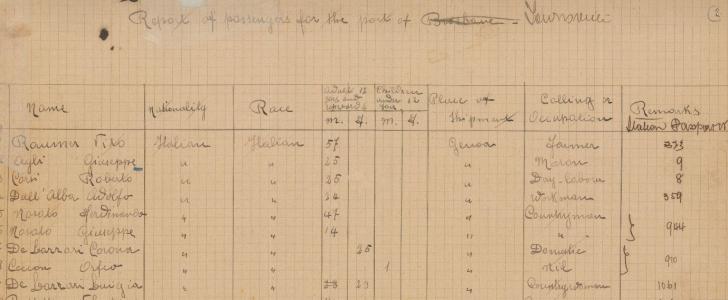 Report of passengers for the port of Brisbane - Townsville
Name Nationality Race Adult 12 yrs and upwards Children under 12 years Place of shipment Calling or Occupation Remarks
m. f. m. f. Station Passport
Vito Italian Italian 57 Genoa Farmer 373
Giuseppe " " 25 " 9
Corsi Roberto " " 25 " Day-labour 8
Dall'Alba Adolfo " " 24 " Workman 359
Rosato Ferdinando " " 47 " Countryman
Rosato Giuseppe " " 14 " " 944
De Lazzari Corona " " 25 " Domestic
Orfeo " " 1 " Nil 910
De Lazzari Luigia " " 23 23 " Countrywoman 1061